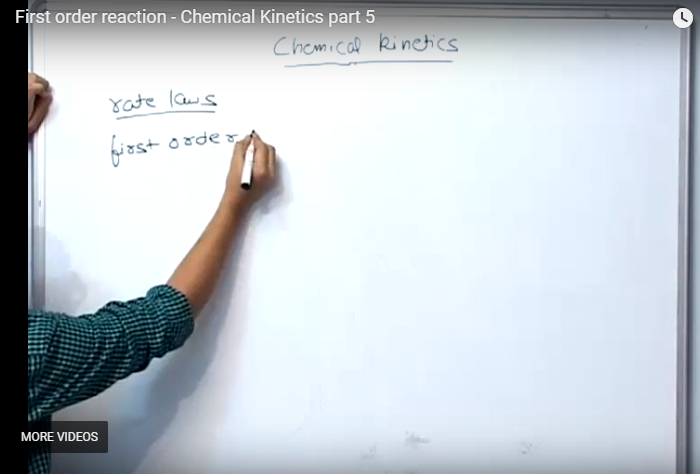 First order reaction - Chemical Kinetics part 5
Chemical kinetics
rate laws
first order
MORE VIDEOS